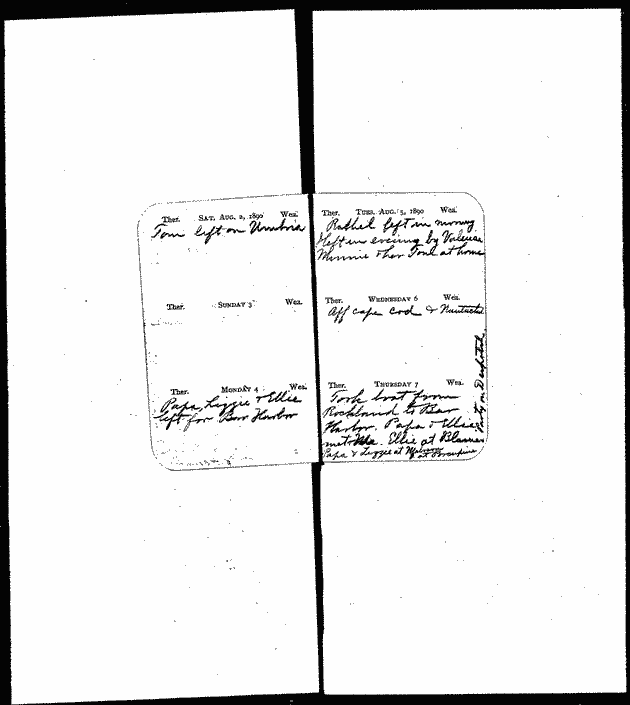 Ther. SAT. AUG. 2, 1890 Wea.
Tom left on Umbria
Ther. SUNDAY 3 Wea.
Ther. MONDAY 4 Wea.
Papa, Lizzie & Ellie
left for Bar Harbor
Ther. TUES. AUG. 5, 1890 Wea.
left in morning
left in evening by
Minnie & her at home
Ther. WEDNESDAY 6 Wea.
Off cape cod & Nantucket
Ther. THURSDAY 7 Wea.
Took boat from
Rockland to Bar
Harbor. Papa & Ellie
met me. Ellie at
Papa & Lizzie at
at Porcupine